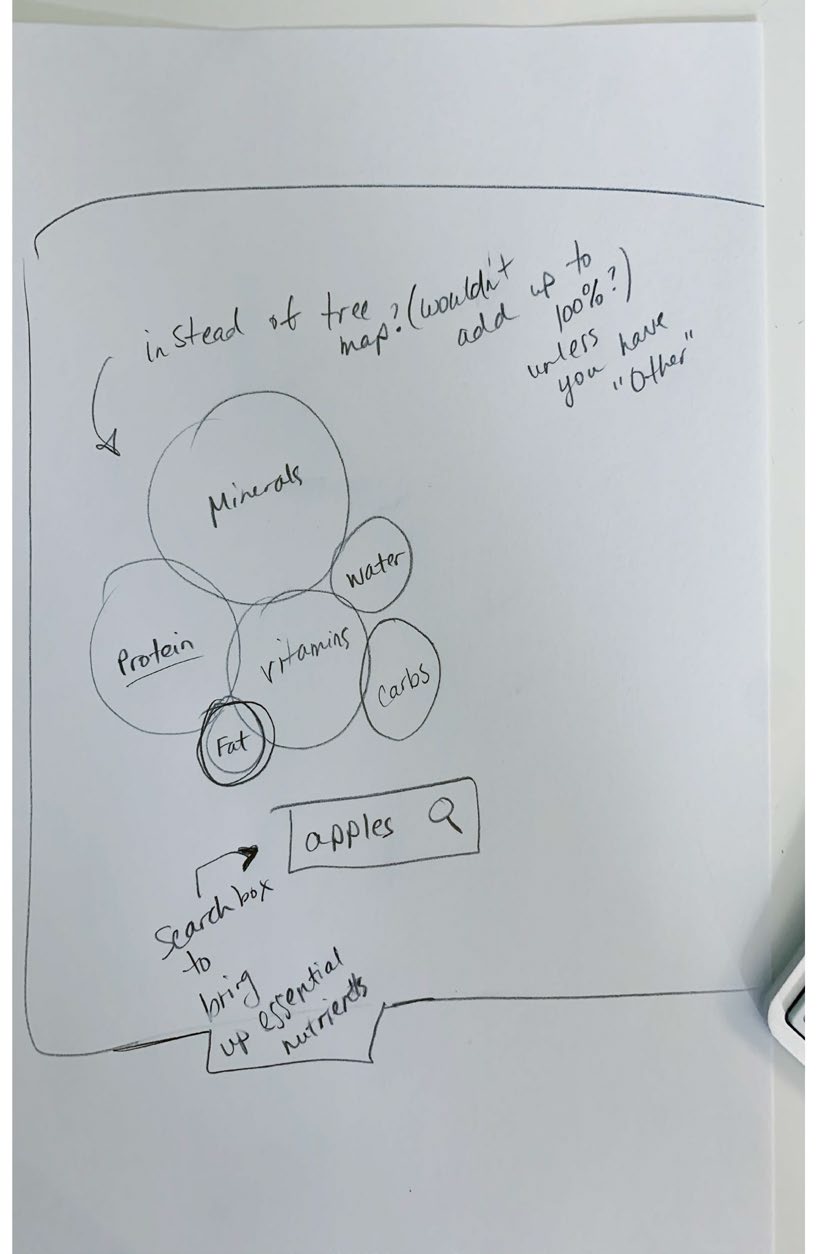 instead of tree
map? (wouldn't
add up to
100%?)
unless
you have
"Other"
Minerals
Water
Protein
Vitamins
Carbs
Fat
apples
Searchbox
to
bring
up essential
nutrients